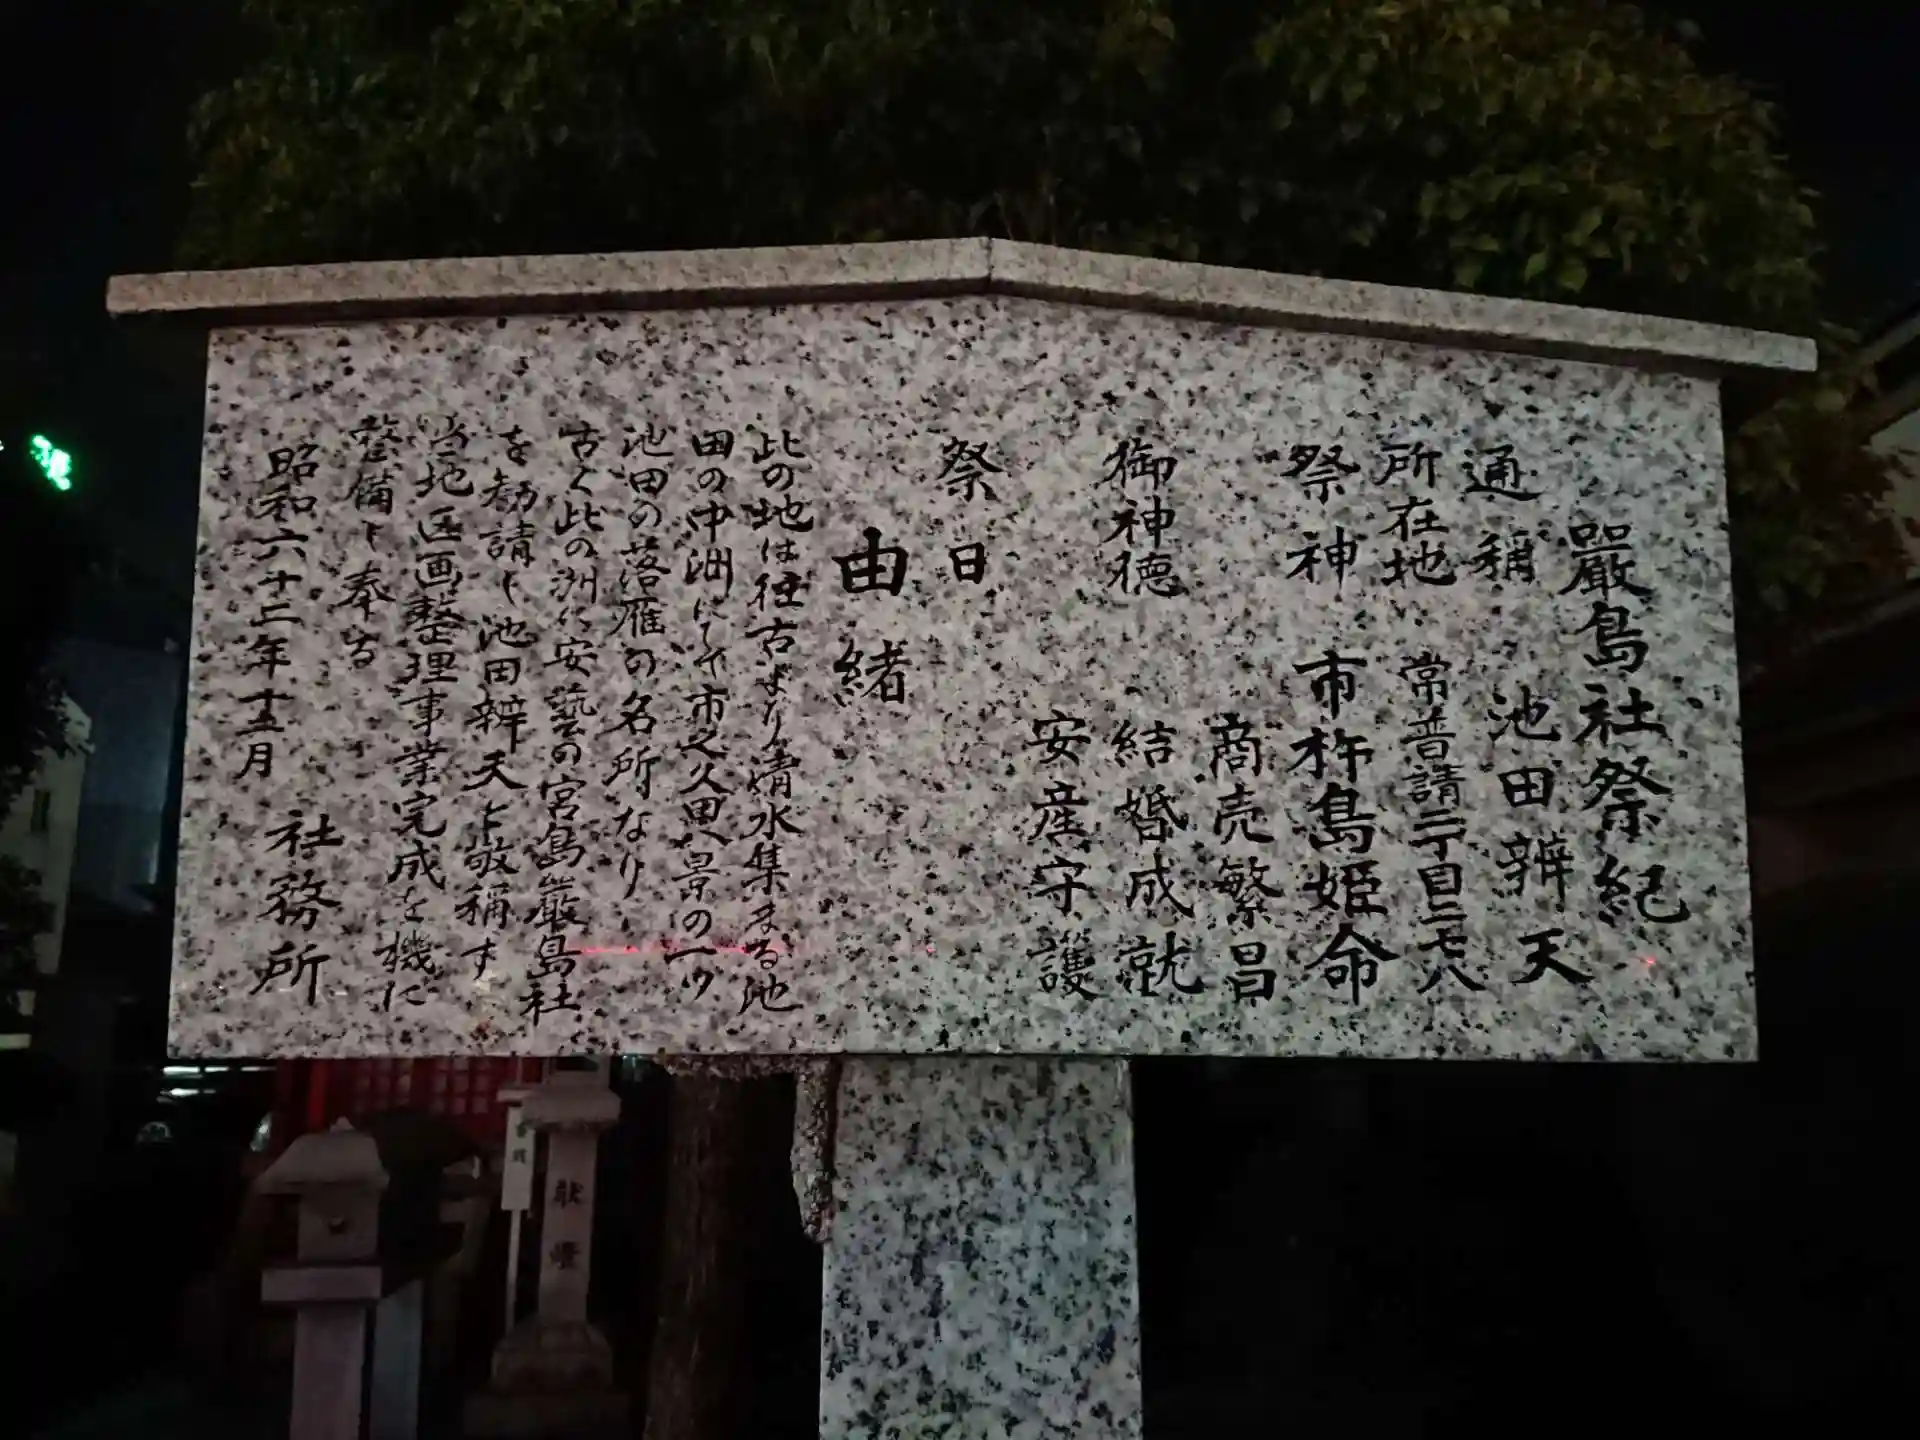 嚴島社祭紀
通稱 池田辨天
所在地 常普請二丁目二七八
祭神 市杵島姫命
御神徳 商売繁昌
結婚成就
安産守護
祭日
由緒
此の地は往古より清水集まる池
田の中洲にて市之久田八景の一ッ
池田の落雁の名所なり
古く此の洲に安藝の宮島嚴島社
を勧請し池田辨天と敬稱す
当地区画整理事業完成を機に
整備し奉る
昭和六十三年十二月 社務所
献燈